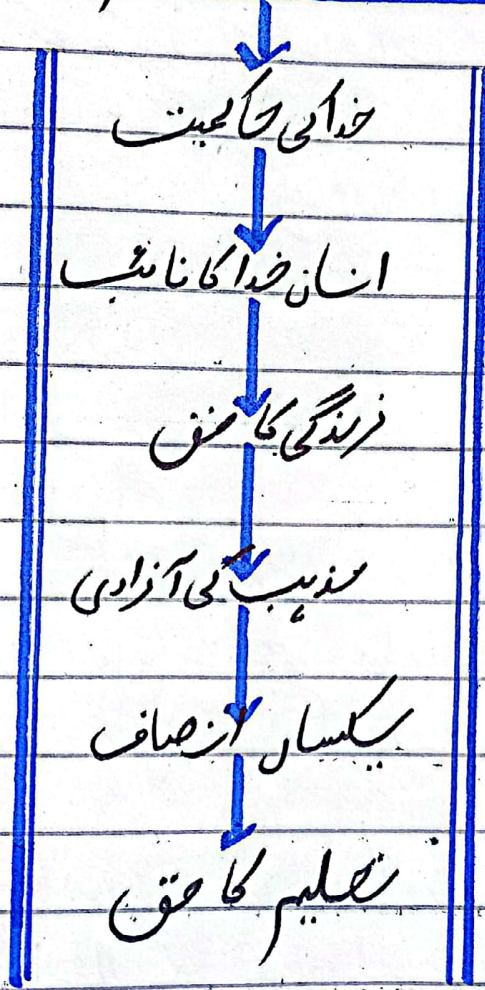 خدا کی حاکمیت
انسان خدا کا نائب
زندگی کا حق
مذہب کی آزادی
یکساں انصاف
تعلیم کا حق